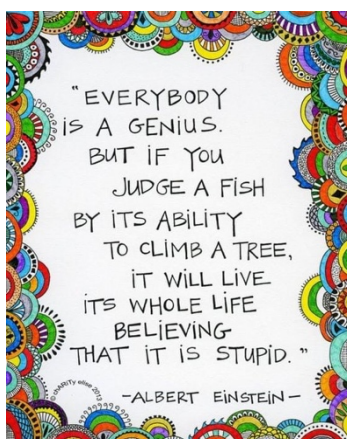 "EVERYBODY
IS A GENIUS.
BUT IF YOU
JUDGE A FISH
BY ITS ABILITY
TO CLIMB A TREE,
IT WILL LIVE
ITS WHOLE LIFE
BELIEVING
THAT IT IS STUPID."
-ALBERT EINSTEIN-
© chARiTy elise 2013